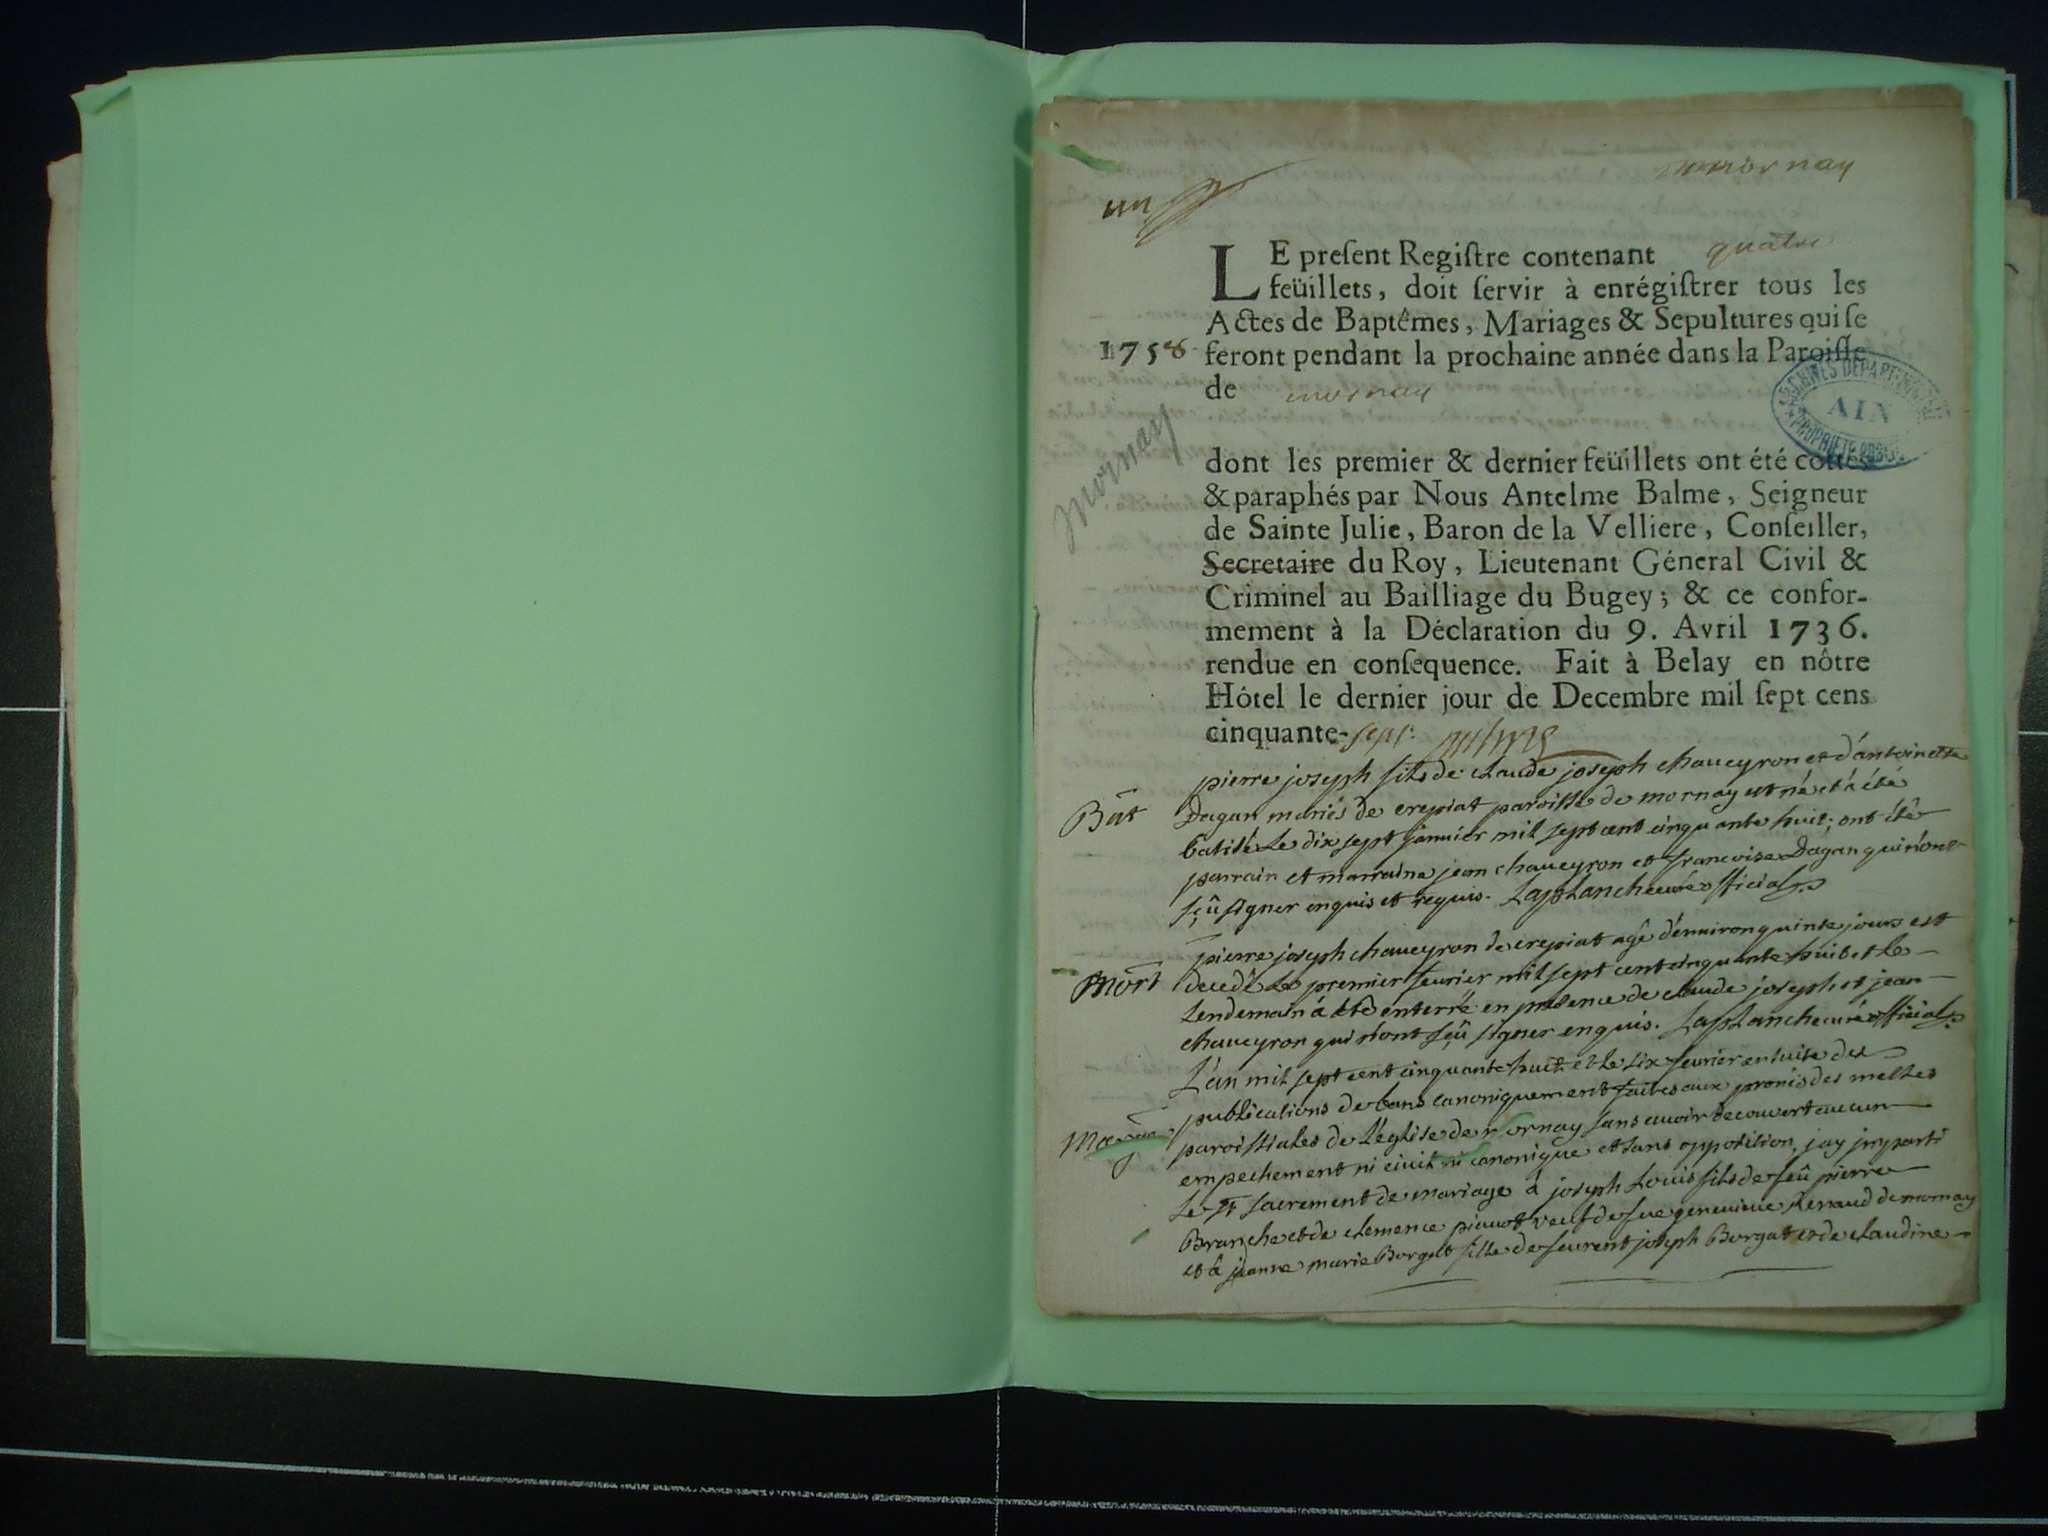 mornay
un
LE preſent Regiſtre contenant quatre
feüillets, doit ſervir à enrégiſtrer tous les
Actes de Baptêmes, Mariages & Sepultures qui ſe
1758 feront pendant la prochaine année dans la Paroiſſe
de mornay
ARCHIVES DEPARTEMENTALES
AIN
PROPRIETE PUBLIQUE
mornay
dont les premier & dernier feüillets ont été cottés
& paraphés par Nous Antelme Balme, Seigneur
de Sainte Julie, Baron de la Velliere, Conſeiller,
Secretaire du Roy, Lieutenant Géneral Civil &
Criminel au Bailliage du Bugey; & ce confor-
mement à la Déclaration du 9. Avril 1736.
rendue en conſequence. Fait à Belay en nôtre
Hôtel le dernier jour de Decembre mil ſept cens
cinquante-sept.
pierre joseph fils de claude joseph chaueyron et d'antoinette
Bât Dagan mariés de crepiat paroisse de mornay est né et a été
batisé le dix sept janvier mil sept cent cinquante huit; ont été
parrain et marraine jean chaueyron et francoise Dagan qui n'ont
sçû signer enquis et requis. Laplanche curé official
pierre joseph chaueyron de crepiat agé d'enuiron quinte jours est
Mort decedé le premier feurier mil sept cent cinquante huit et le
lendemain á été enterré en presence de claude joseph et jean
chaueyron qui n'ont sçû signer enquis. Laplanche curé official
L'an mil sept cent cinquante huit et le six feurier ensuite des
publications de bans canoniquement faites aux pronés des messes
paroissiales de l'église de mornay sans auoir decouvert aucun
empechement ni ciuil ni canonique et sans opposition, jay jmparti
le st sacrement de mariage á joseph Louis fils de feû pierre
Branche et de clemence piquot veuf de fue geneuieue Renaud de mornay
et â jeanne marie Borgat fille de feurent joseph Borgat et de claudine